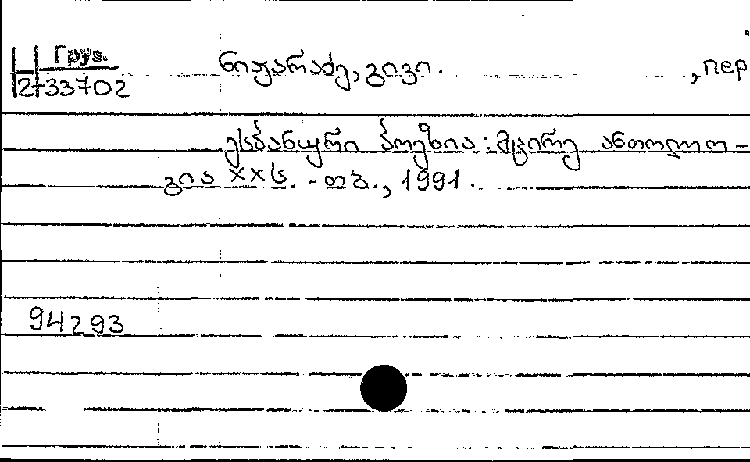 Груз.
ნიჟარაძე, გივი. , пер
2-33702
ესპანური პოეზია : მცირე ანთოლო-
გია XXს. - თბ., 1991.
94293